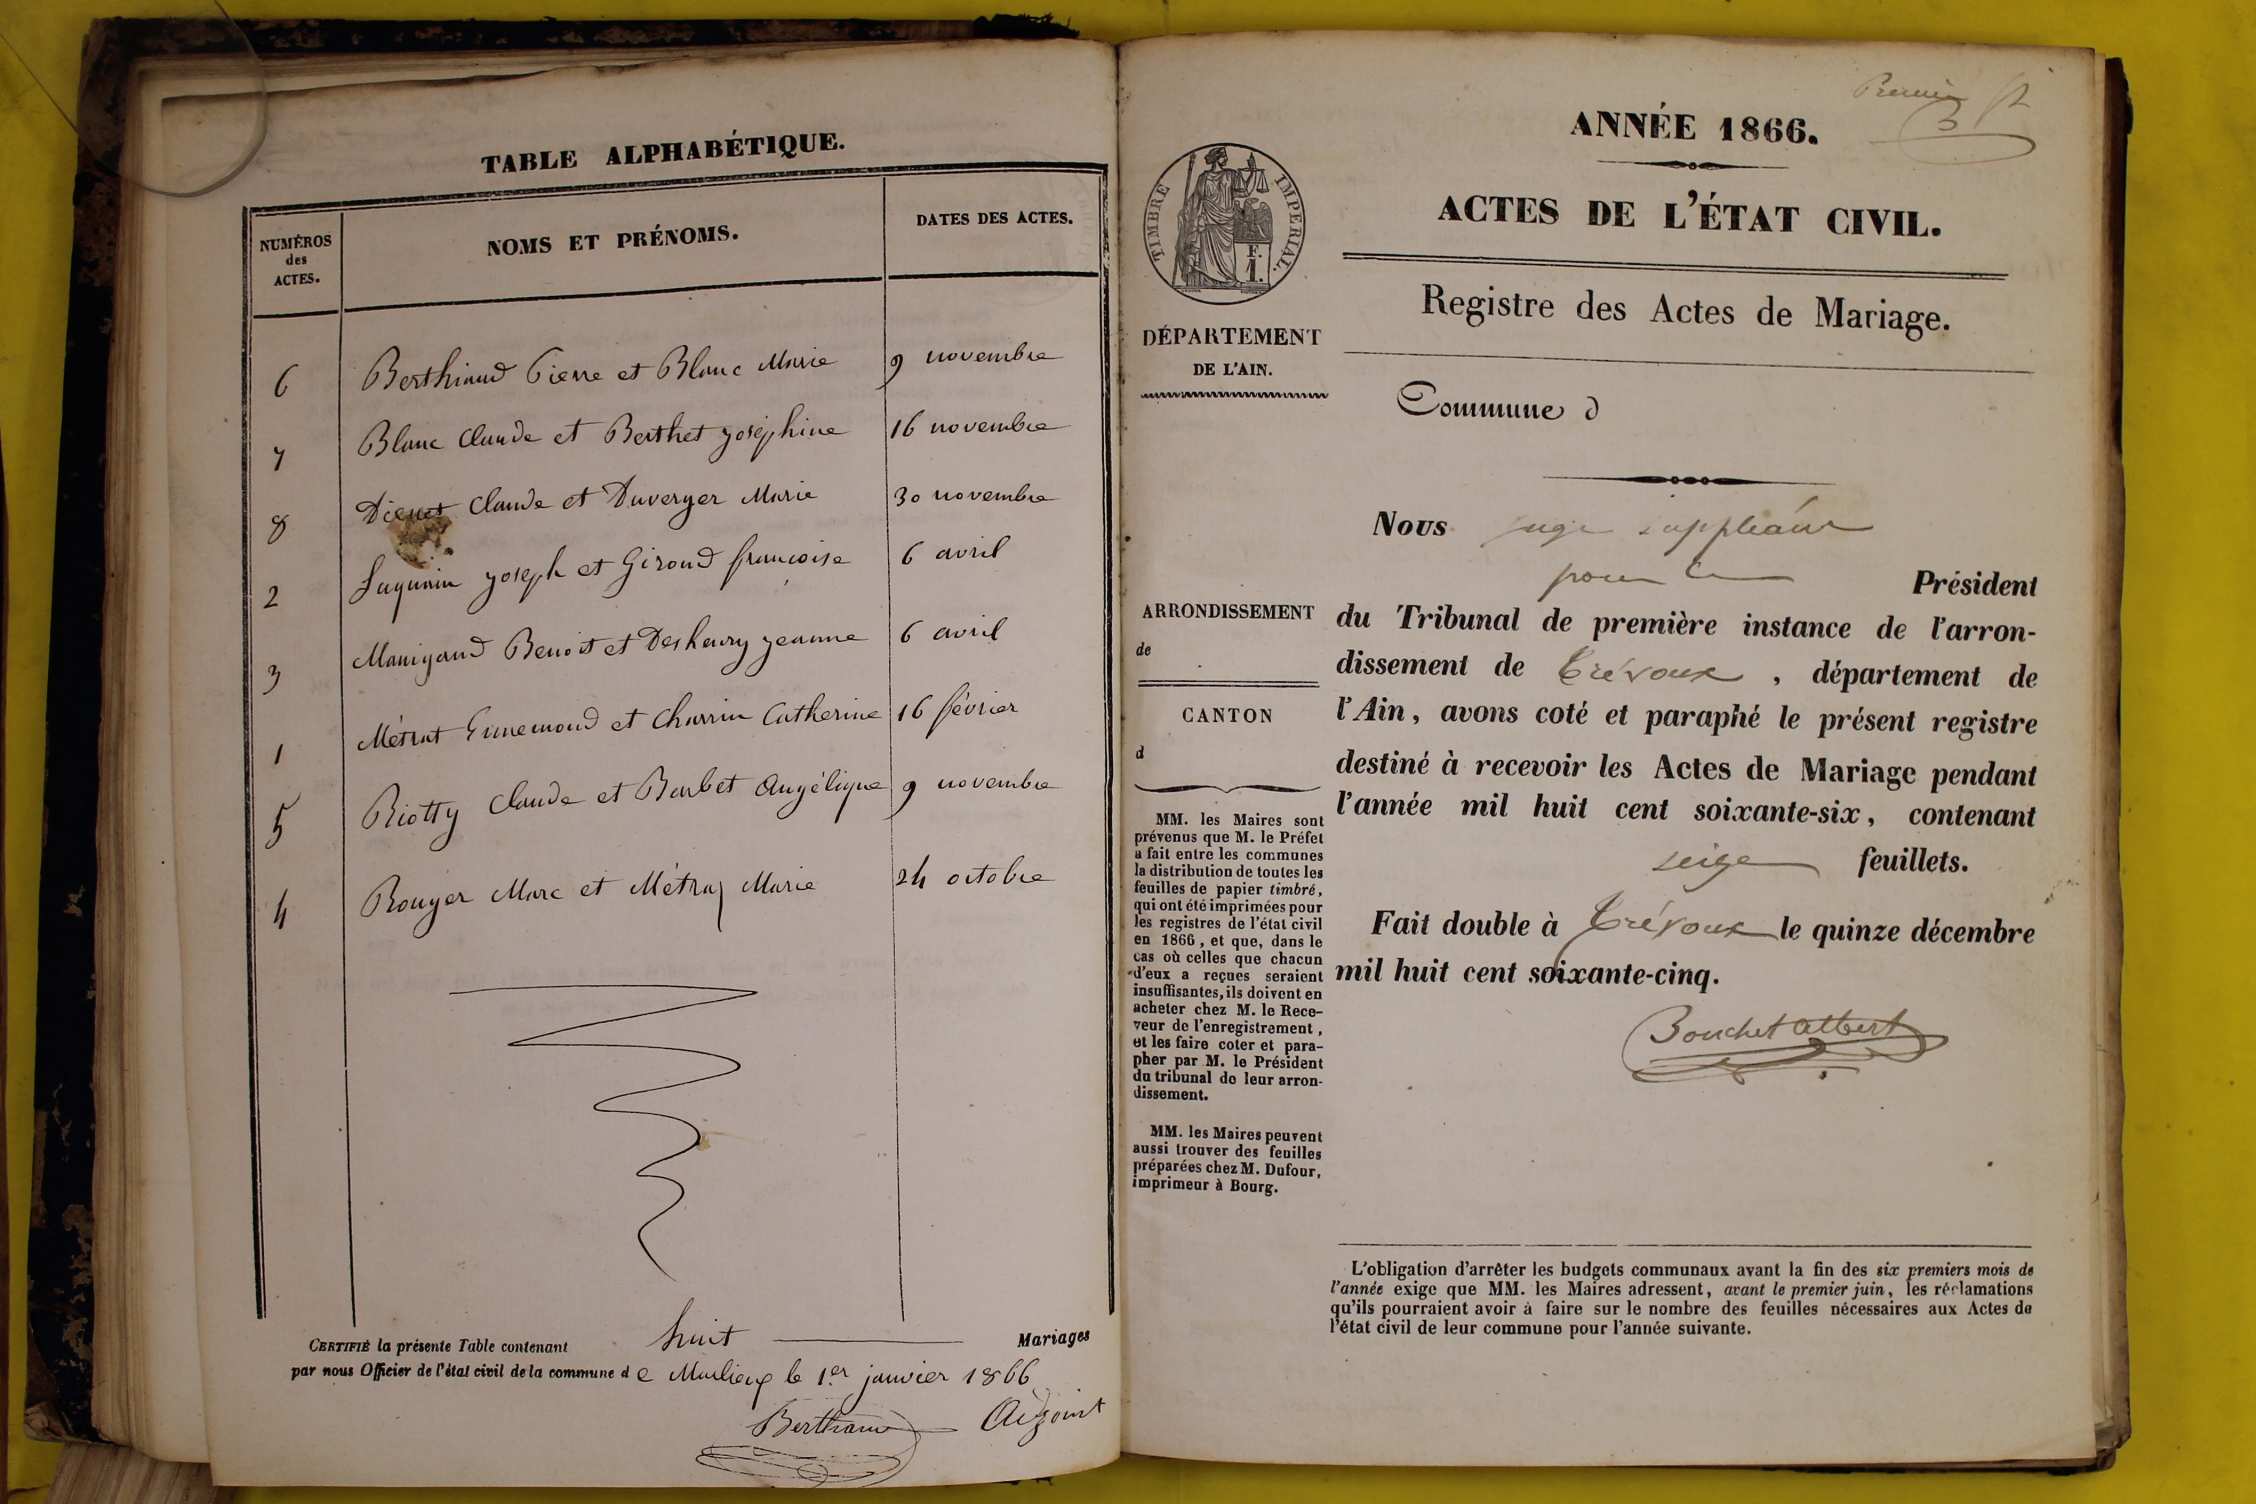 TABLE ALPHABÉTIQUE.
NUMÉROS
des
ACTES.
NOMS ET PRÉNOMS.
DATES DES ACTES.
6 Berthiaud Pierre et Blanc Marie 9 novembre
7 Blanc Claude et Berthet Joséphine 16 novembre
8 Claude et Duverger Marie 30 novembre
2 Joseph et Giroud françoise 6 avril
3 Manigand Benoit et Deshenry Jeanne 6 avril
1 Métrat et Charrin Catherine 16 février
5 Riotty Claude et Barbet Angélique 9 novembre
4 Rouyer Marc et Métraz Marie 24 octobre
CERTIFIÉ la présente Table contenant huit Mariages
par nous Officier de l'état civil de la commune de Marlieux le 1er janvier 1866
Berthaud Adjoint
Premier
ANNÉE 1866.
ACTES DE L'ÉTAT CIVIL.
Registre des Actes de Mariage.
TIMBRE IMPERIAL.
F.
1.
DÉPARTEMENT
DE L'AIN.
Commune d
Nous juge suppléant
pour le Président
du Tribunal de première instance de l'arron-
dissement de Trévoux, département de
l'Ain, avons coté et paraphé le présent registre
destiné à recevoir les Actes de Mariage pendant
l'année mil huit cent soixante-six, contenant
seize feuillets.
Fait double à Trévoux le quinze décembre
mil huit cent soixante-cinq.
Bouchet Albert
ARRONDISSEMENT
de
CANTON
d
MM. les Maires sont
prévenus que M. le Préfet
a fait entre les communes
la distribution de toutes les
feuilles de papier timbré,
qui ont été imprimées pour
les registres de l'état civil
en 1866, et que, dans le
cas où celles que chacun
d'eux a reçues seraient
insuffisantes, ils doivent en
acheter chez M. le Rece-
veur de l'enregistrement,
et les faire coter et para-
pher par M. le Président
du tribunal de leur arron-
dissement.
MM. les Maires peuvent
aussi trouver des feuilles
préparées chez M. Dufour,
imprimeur à Bourg.
L'obligation d'arrêter les budgets communaux avant la fin des six premiers mois de
l'année exige que MM. les Maires adressent, avant le premier juin, les réclamations
qu'ils pourraient avoir à faire sur le nombre des feuilles nécessaires aux Actes de
l'état civil de leur commune pour l'année suivante.